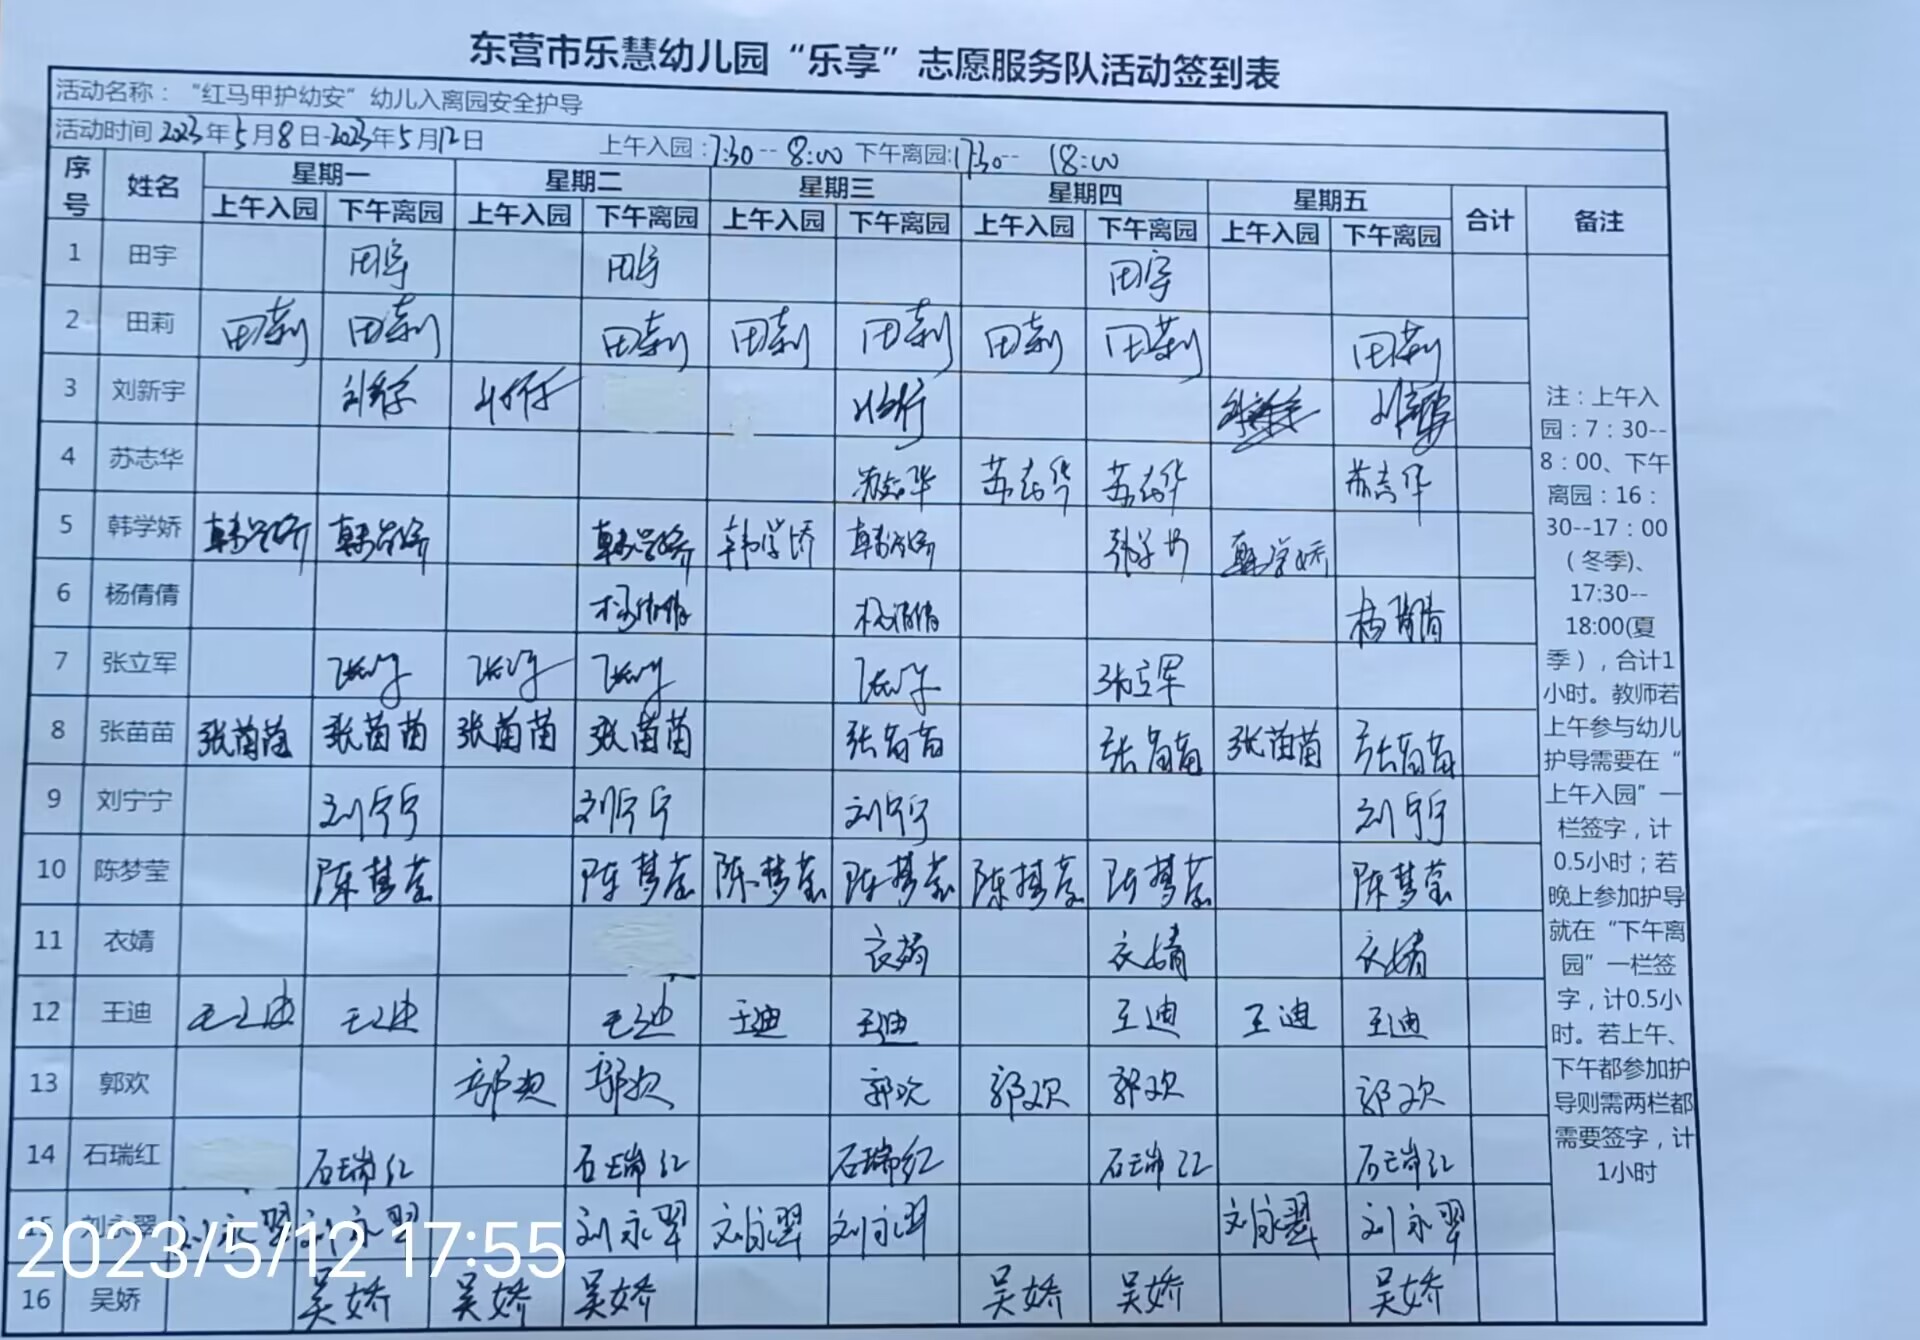 东营市乐慧幼儿园“乐享”志愿服务队活动签到表
活动名称：“红马甲护幼安”幼儿入离园安全护导
活动时间 2023年5月8日-2023年5月12日 上午入园：7:30--8:00 下午离园:17:30--18:00
序号 姓名 星期一 星期二 星期三 星期四 星期五 合计 备注
上午入园 下午离园 上午入园 下午离园 上午入园 下午离园 上午入园 下午离园 上午入园 下午离园
1 田宇 田宇 田宇 田宇
2 田莉 田莉 田莉 田莉 田莉 田莉 田莉 田莉 田莉
3 刘新宇
4 苏志华 苏志华 苏志华 苏志华 苏志华
5 韩学娇 韩学娇 韩学娇 韩学娇 韩学娇 韩学娇 韩学娇
6 杨倩倩 杨倩倩 杨倩倩 杨倩倩
7 张立军 张立军 张立军 张立军 张立军 张立军
8 张苗苗 张苗苗 张苗苗 张苗苗 张苗苗 张苗苗 张苗苗 张苗苗 张苗苗
9 刘宁宁 刘宁宁 刘宁宁 刘宁宁 刘宁宁
10 陈梦莹 陈梦莹 陈梦莹 陈梦莹 陈梦莹 陈梦莹 陈梦莹 陈梦莹
11 衣婧 衣婧 衣婧 衣婧
12 王迪 王迪 王迪 王迪 王迪 王迪 王迪 王迪 王迪
13 郭欢 郭欢 郭欢 郭欢 郭欢 郭欢 郭欢
14 石瑞红 石瑞红 石瑞红 石瑞红 石瑞红 石瑞红
15 刘永翠 刘永翠 刘永翠 刘永翠 刘永翠 刘永翠 刘永翠 刘永翠
16 吴娇 吴娇 吴娇 吴娇 吴娇 吴娇 吴娇
注：上午入
园：7：30--
8：00、下午
离园：16：
30--17：00
(冬季)、
17:30--
18:00(夏
季），合计1
小时。教师若
上午参与幼儿
护导需要在“
上午入园”一
栏签字，计
0.5小时；若
晚上参加护导
就在“下午离
园”一栏签
字，计0.5小
时。若上午、
下午都参加护
导则需两栏都
需要签字，计
1小时
2023/5/12 17:55